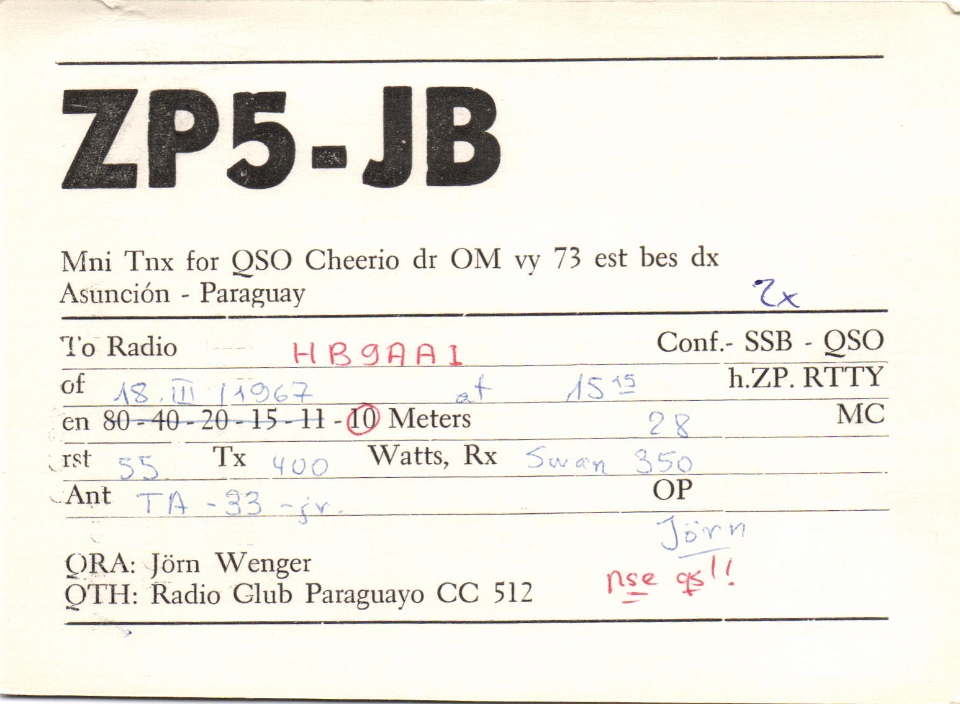 ZP5-JB
Mni Tnx for QSO Cheerio dr OM vy 73 est bes dx
Asunción - Paraguay
2x
To Radio HB9AAI Conf.- SSB - QSO
of 18. III / 1967 at 15 15 h.ZP. RTTY
en 80-40-20-15-11-10 Meters 28 MC
rst 55 Tx 400 Watts, Rx Swan 350
Ant TA-33-jr. OP
Jörn
QRA: Jörn Wenger
nse qs!!
QTH: Radio Glub Paraguayo CC 512